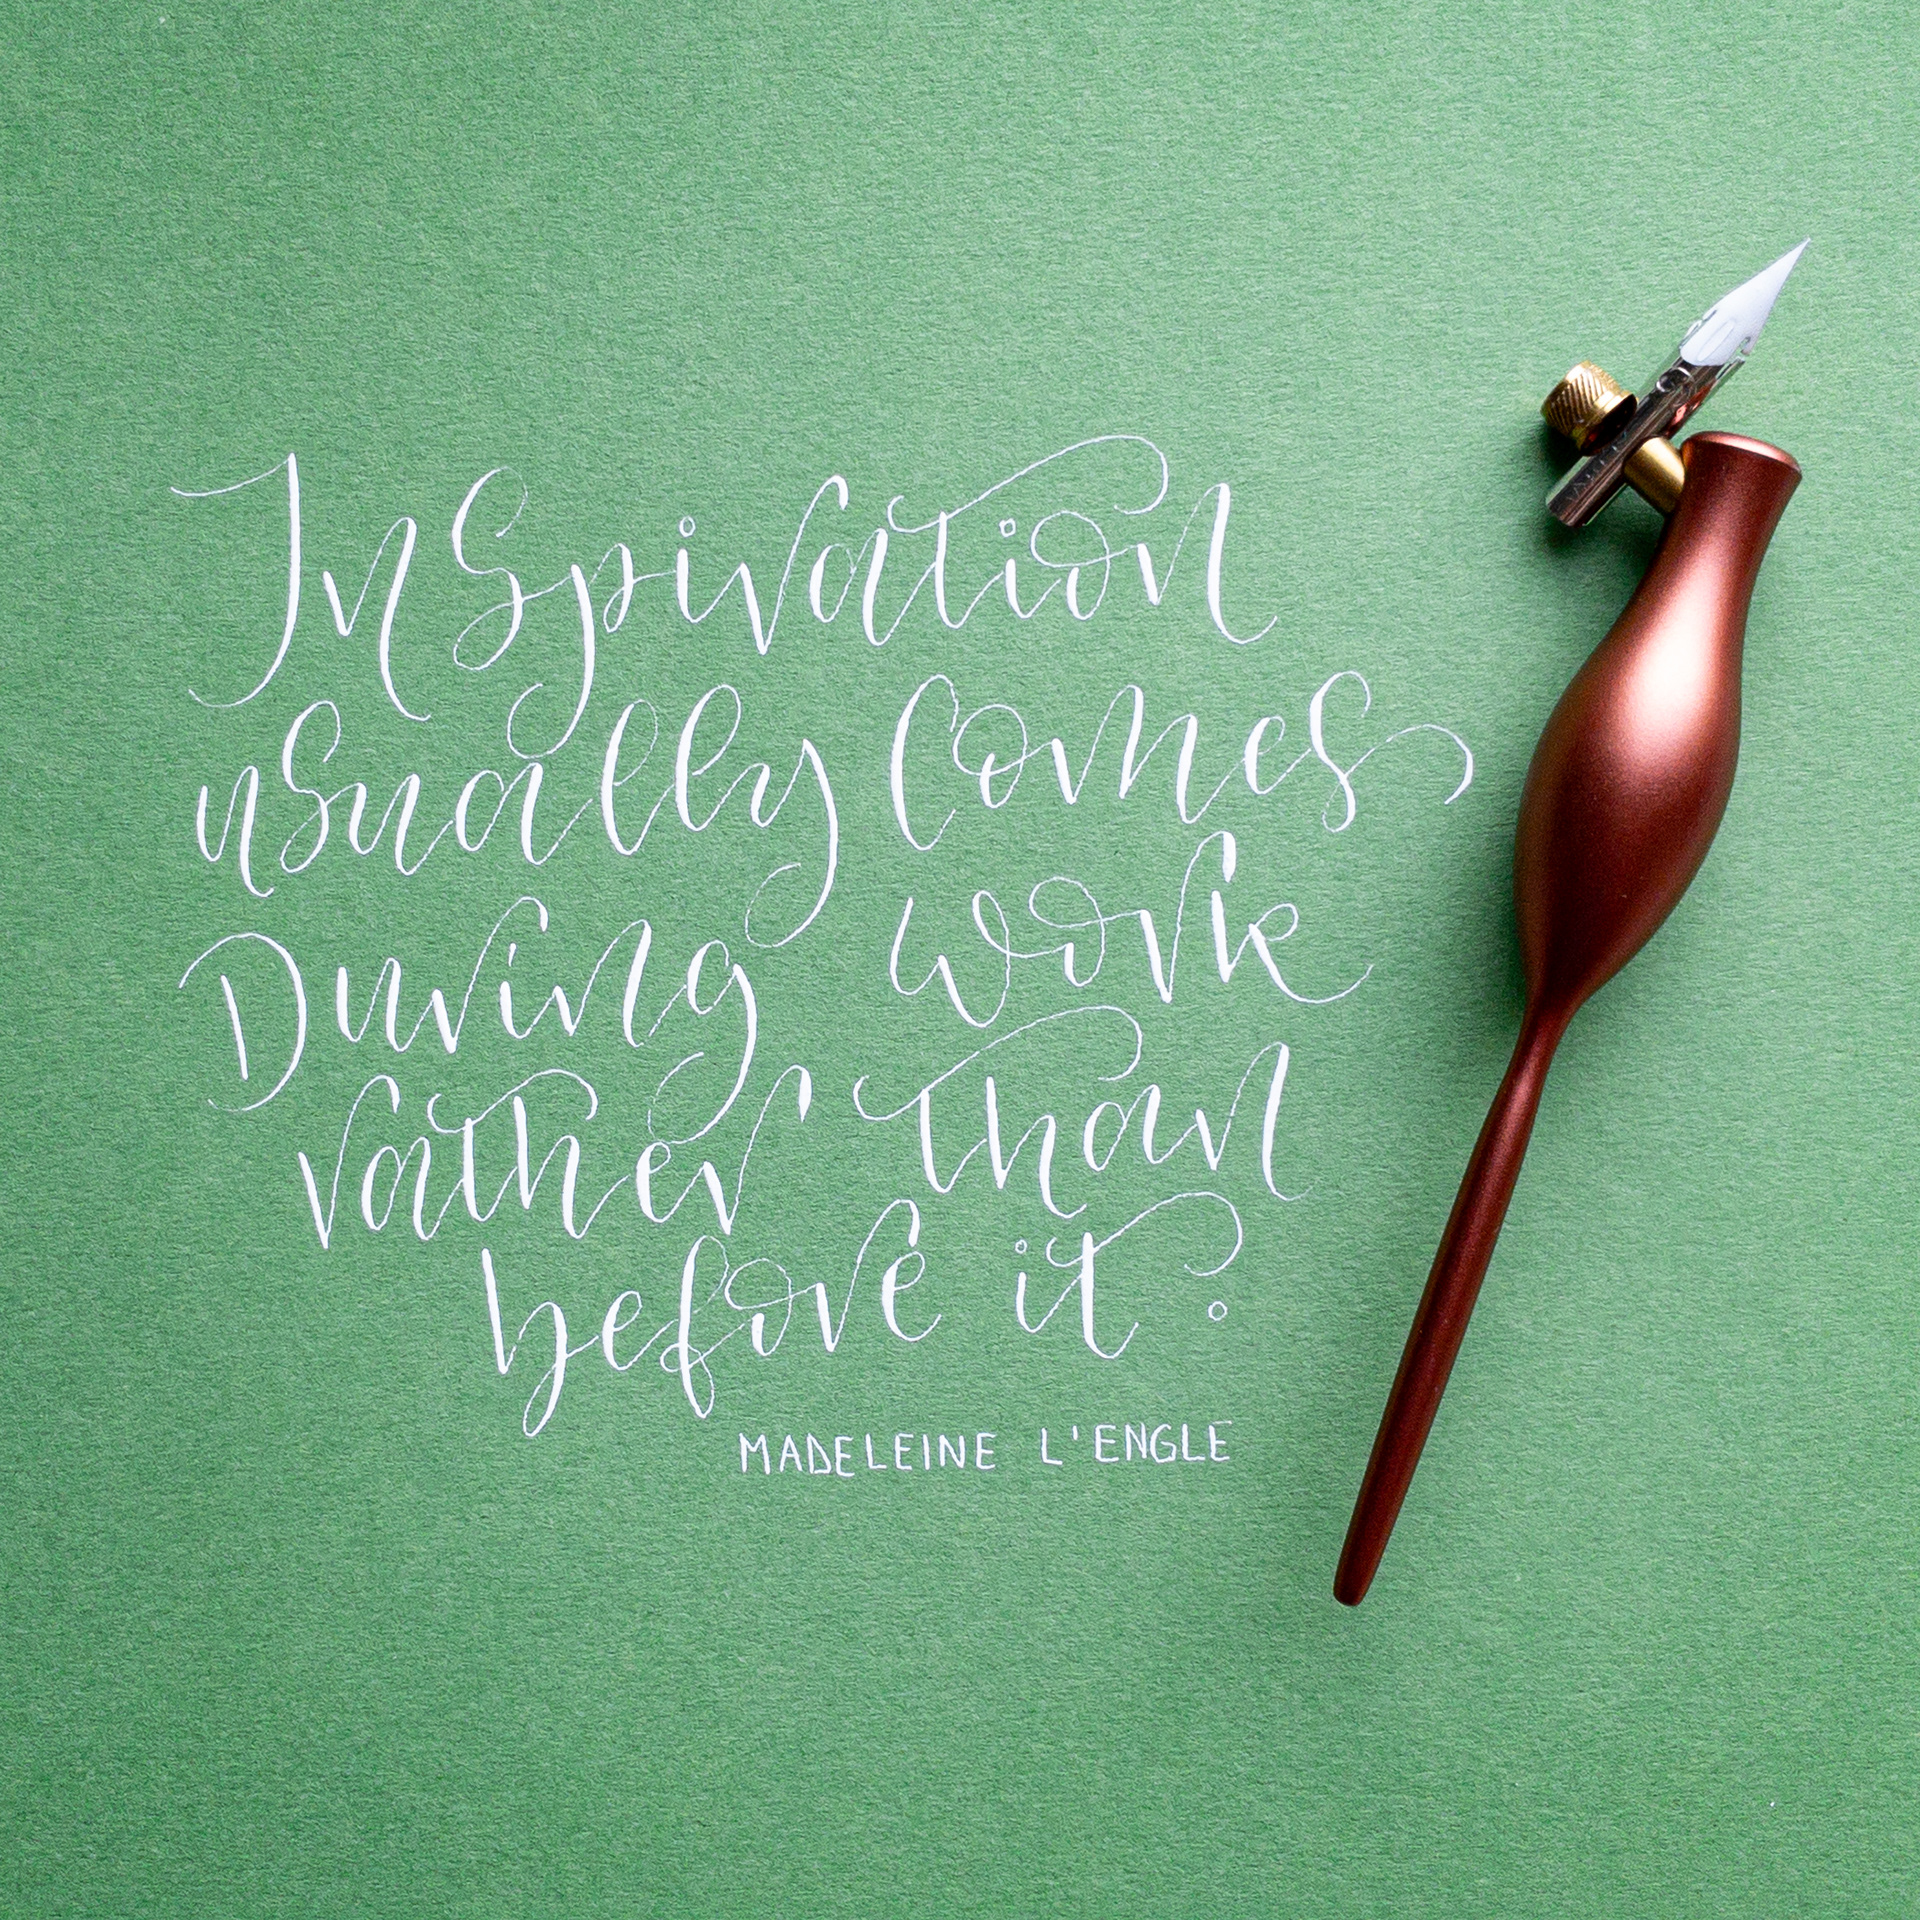 Inspiration
usually comes
During work
rather than
before it.
MADELEINE L'ENGLE